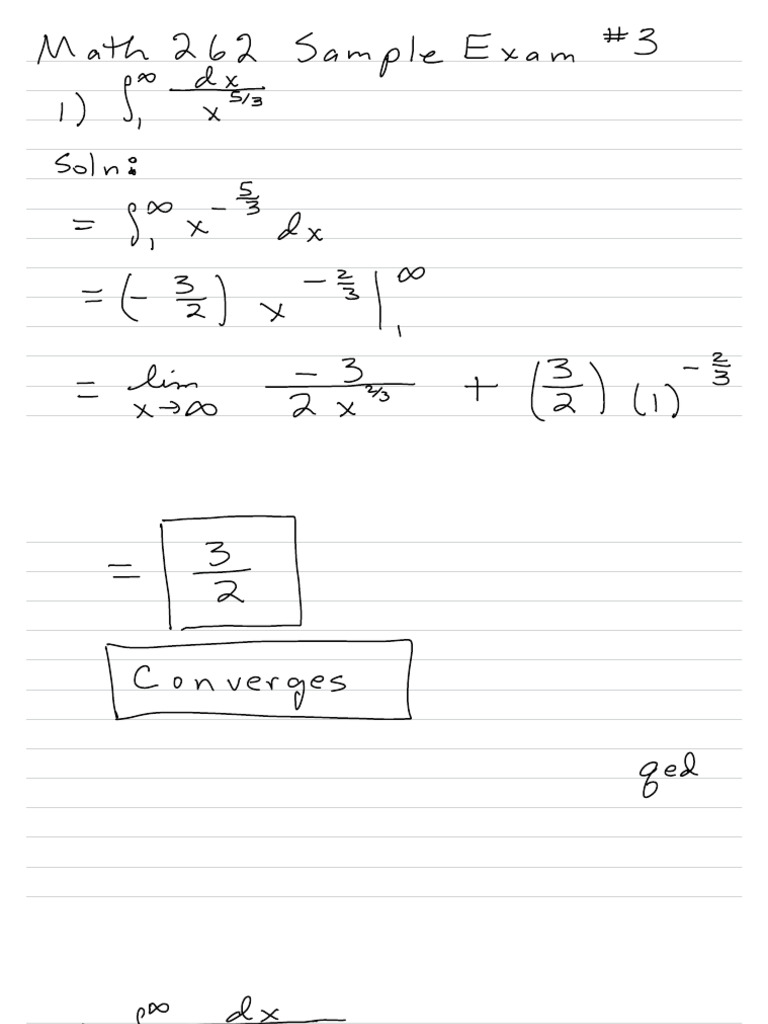 Math 262 Sample Exam #3
1) ∫₁^∞ dx / x^(5/3)
Soln:
= ∫₁^∞ x^(-5/3) dx
= (- 3/2) x^(-2/3) |₁^∞
= lim x→∞ -3 / 2x^(2/3) + (3/2) (1)^(-2/3)
= 3/2
Converges
qed
∫^∞ dx